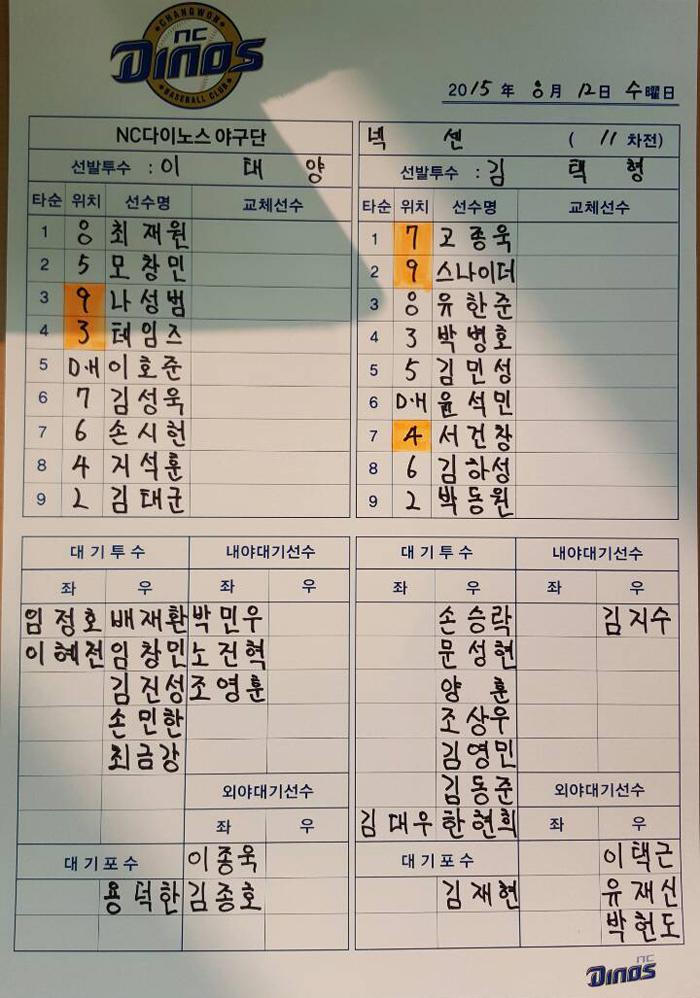 CHANGWON
NC
DINOS
BASEBALL CLUB
2015년 8월 12일 수曜日
NC다이노스 야구단
선발투수 : 이 태 양
타순 위치 선수명 교체선수
1 8 최재원
2 5 모창민
3 9 나성범
4 3 테임즈
5 D·H 이호준
6 7 김성욱
7 6 손시헌
8 4 지석훈
9 2 김태군
넥 센 ( 11 차전)
선발투수 : 김 택 형
타순 위치 선수명 교체선수
1 7 고종욱
2 9 스나이더
3 8 유한준
4 3 박병호
5 5 김민성
6 D·H 윤석민
7 4 서건창
8 6 김하성
9 2 박동원
대기투수 내야대기선수
좌 우 좌 우
임정호 배재환 박민우
이혜전 임창민 노진혁
김진성 조영훈
손민한
최금강
외야대기선수
좌 우
대기포수 이종욱
용덕한 김종호
대기투수 내야대기선수
좌 우 좌 우
손승락 김지수
문성현
양 훈
조상우
김영민
김동준 외야대기선수
김대우 한현희 좌 우
대기포수 이택근
김재현 유재신
박헌도
NC
DINOS